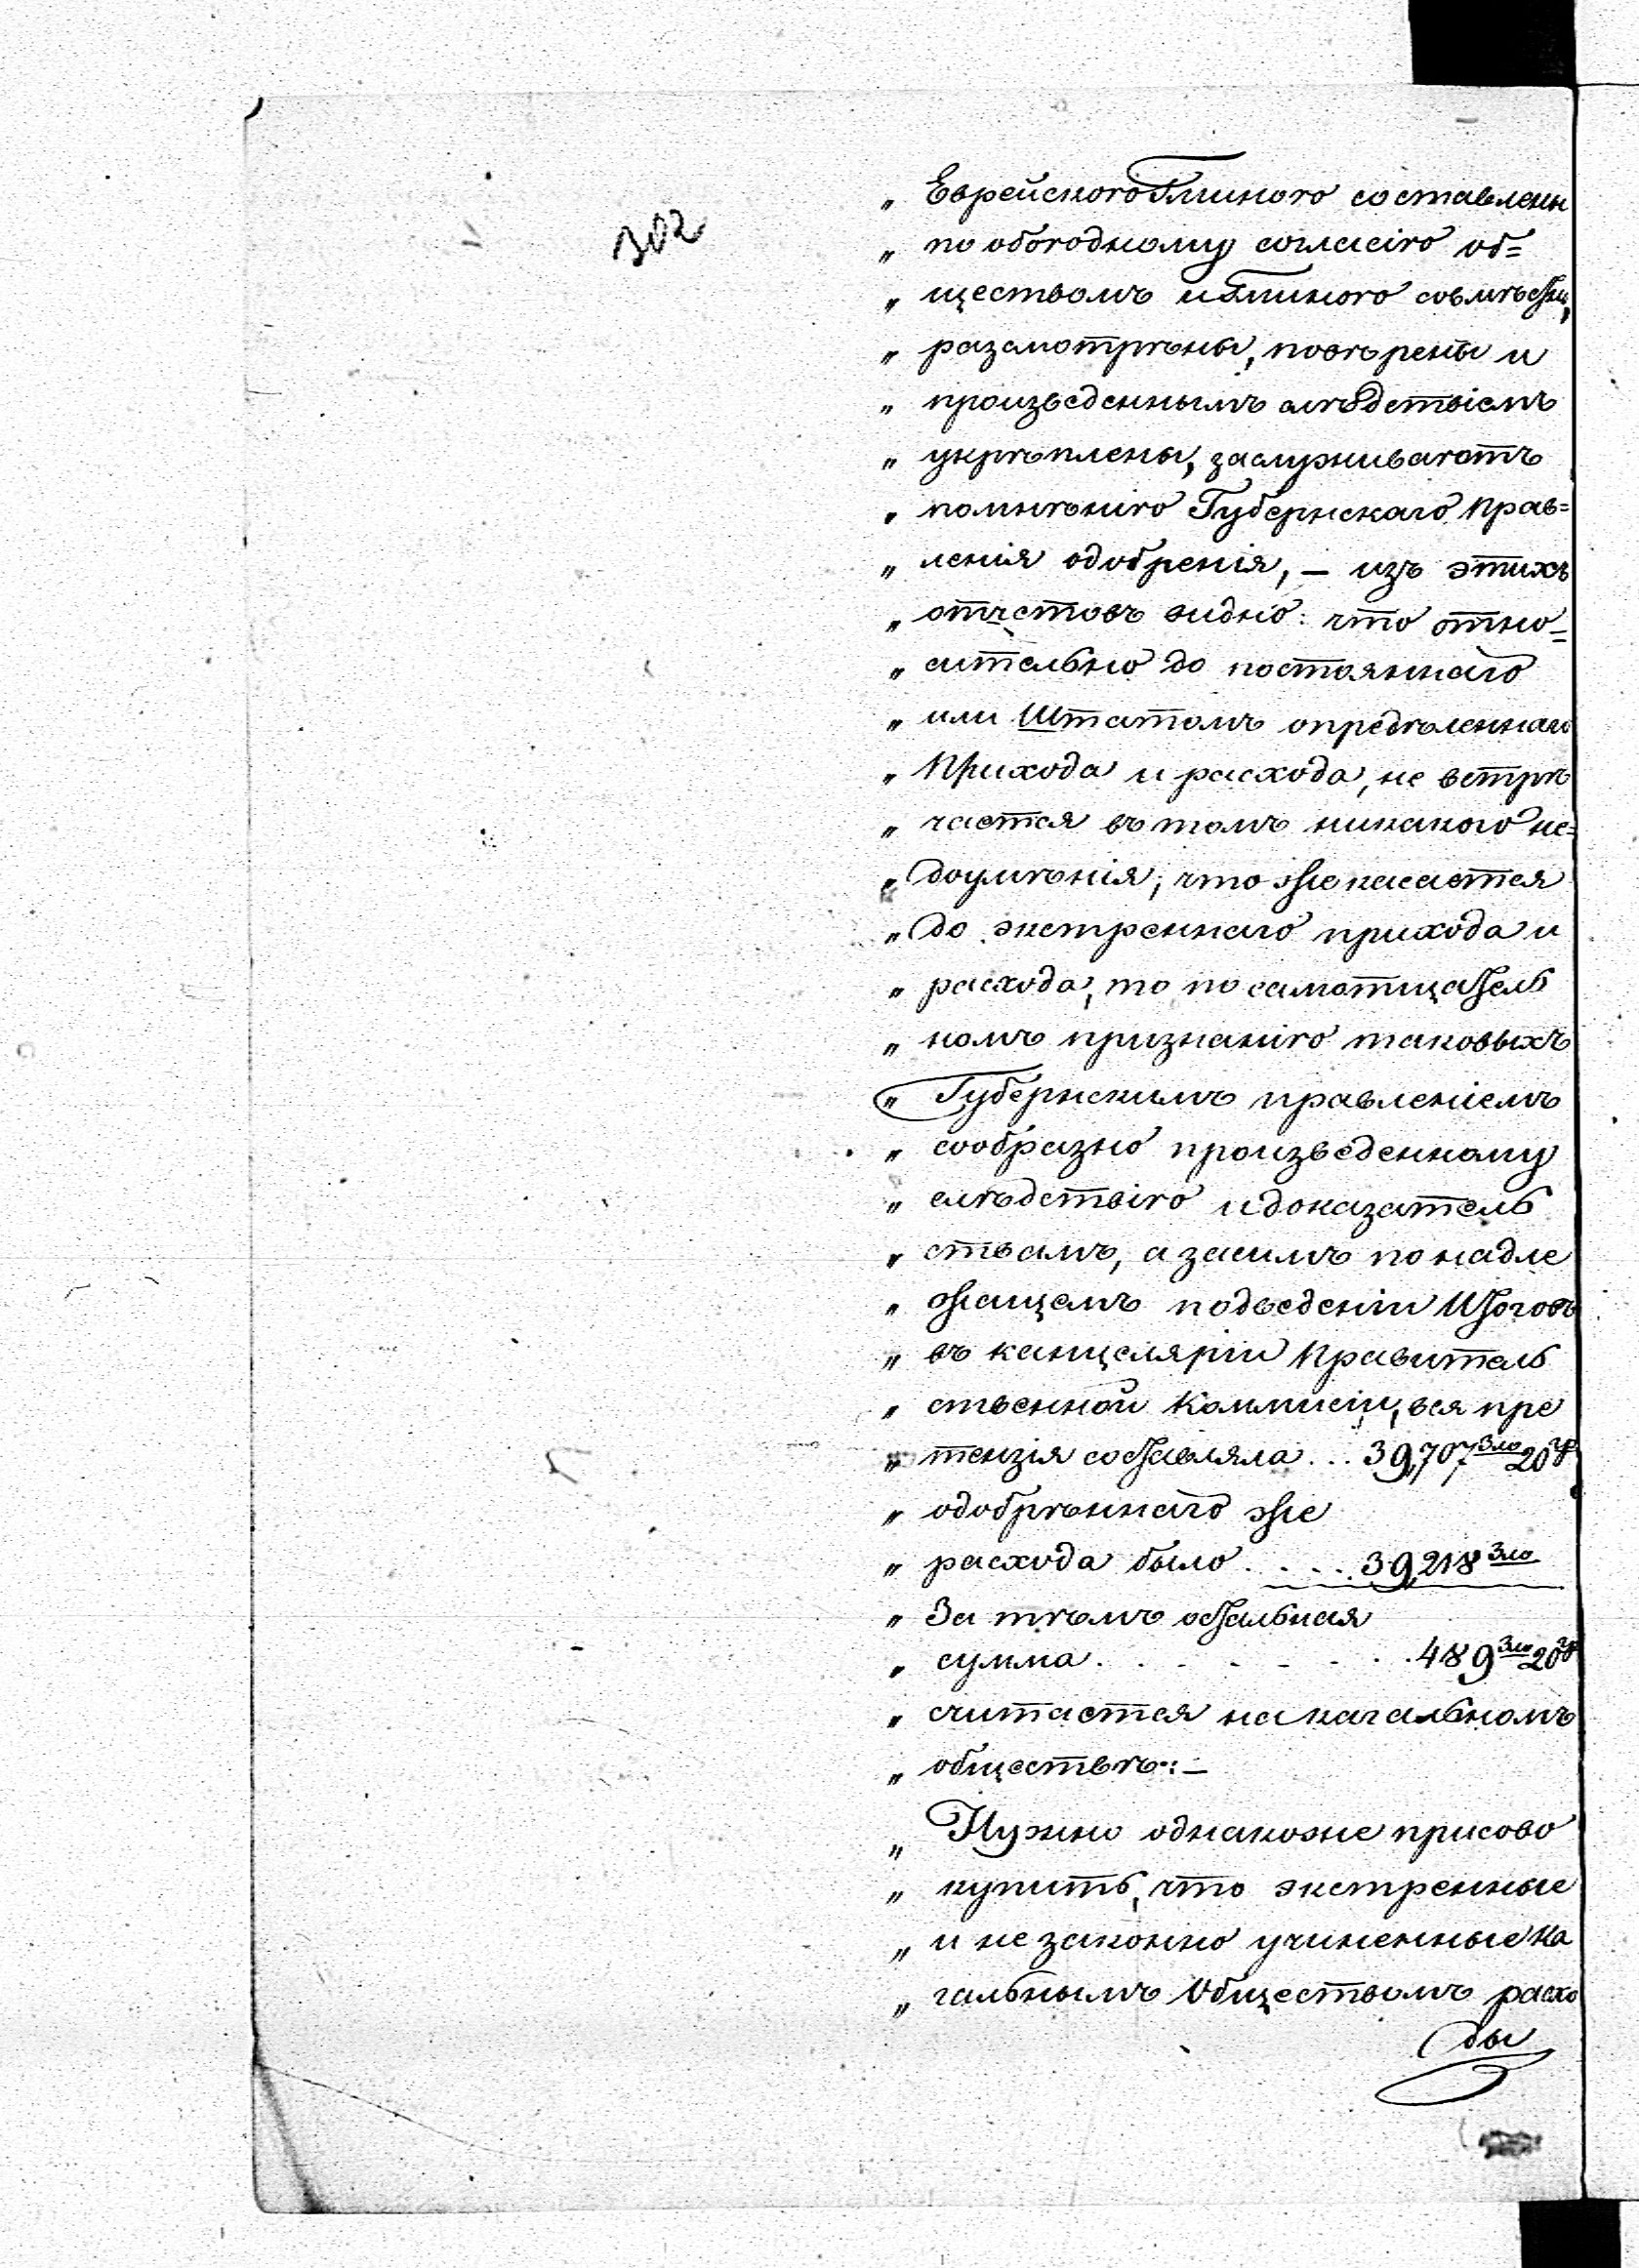 302
„ Еврейского Глиного составлены
„ по обогодному согласію об=
„ ществомъ и Глиного совмѣстно,
„ разсмотрѣны, повѣрены и
„ произведеннымъ слѣдствіемъ
„ укрѣплены, заслуживаютъ
„ помнѣнію Губернскаго Прав=
„ ленія одобренія, — изъ этихъ
„ отчетовъ видно: что отно=
„ сительно до постояннаго
„ или Штатомъ опредѣленнаго
„ Прихода и расхода, не встрѣ
„ чается въ томъ никакого не=
„ доумѣнія; что же касается
„ до экстреннаго прихода и
„ расхода, то по самотщатель
„ номъ признанію таковыхъ
„ Губернскимъ правленіемъ
„ сообразно произведенному
„ слѣдствію и доказатель
„ ствамъ, а засимъ по надле
„ жащемъ подведеніи Итоговъ
„ въ канцеляріи Правитель
„ ственной Коммисіи, вся пре
„ тензія составляла... 39,707 Зло 20 гр
„ одобрѣннаго же
„ расхода было..... 39,218 Зло
„ За тѣмъ остальная
„ сумма........ 489 Зло 20 гр
„ считается на кагальномъ
„ обществѣ:—
„ Нужно однакоже присово
„ купить, что экстренные
„ и не законно учиненные Ка
„ гальнымъ Обществомъ расхо
ды